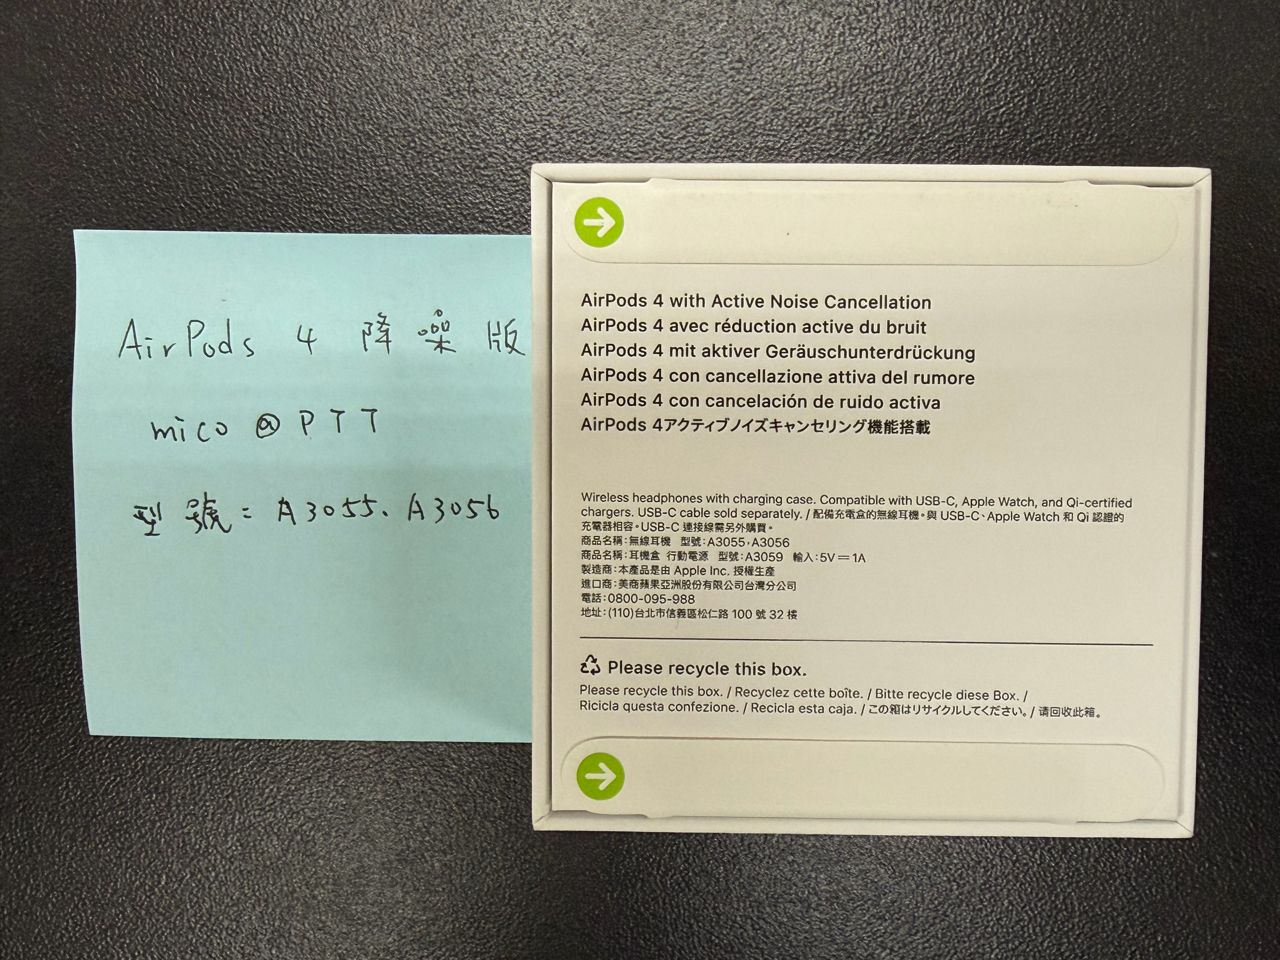 AirPods 4 降噪版
mico @ PTT
型號：A3055、A3056
AirPods 4 with Active Noise Cancellation
AirPods 4 avec réduction active du bruit
AirPods 4 mit aktiver Geräuschunterdrückung
AirPods 4 con cancellazione attiva del rumore
AirPods 4 con cancelación de ruido activa
AirPods 4アクティブノイズキャンセリング機能搭載
Wireless headphones with charging case. Compatible with USB-C, Apple Watch, and Qi-certified
chargers. USB-C cable sold separately. / 配備充電盒的無線耳機。與 USB-C、Apple Watch 和 Qi 認證的
充電器相容。USB-C 連接線需另外購買。
商品名稱：無線耳機 型號：A3055，A3056
商品名稱：耳機盒 行動電源 型號：A3059 輸入：5V⎓1A
製造商：本產品是由 Apple Inc. 授權生產
進口商：美商蘋果亞洲股份有限公司台灣分公司
電話：0800-095-988
地址：(110)台北市信義區松仁路 100 號 32 樓
Please recycle this box.
Please recycle this box. / Recyclez cette boîte. / Bitte recycle diese Box. /
Ricicla questa confezione. / Recicla esta caja. / この箱はリサイクルしてください。/ 请回收此箱。